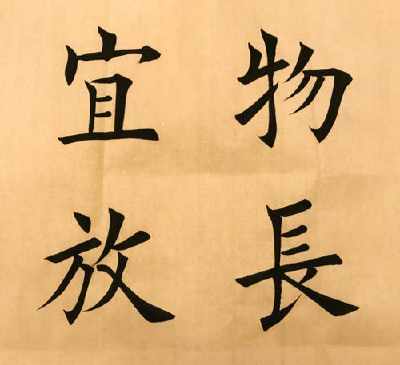 物長
宜放